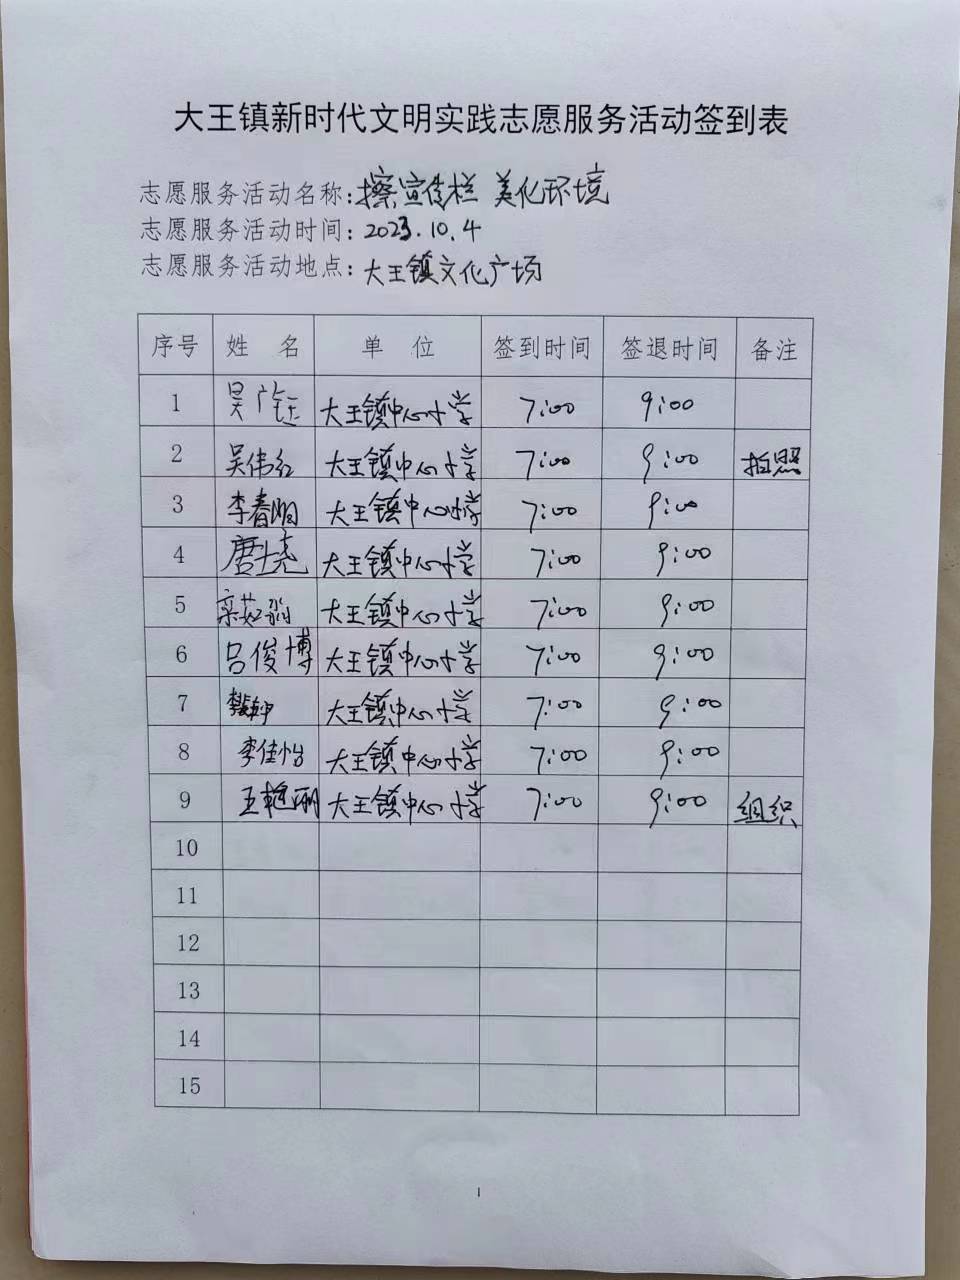 大王镇新时代文明实践志愿服务活动签到表
志愿服务活动名称:擦宣传栏 美化环境
志愿服务活动时间:2023.10.4
志愿服务活动地点:大王镇文化广场
序号 姓 名 单 位 签到时间 签退时间 备注
1 吴广钰 大王镇中心小学 7:00 9:00
2 吴伟红 大王镇中心小学 7:00 9:00 拍照
3 李春娟 大王镇中心小学 7:00 9:00
4 唐士尧 大王镇中心小学 7:00 9:00
5 大王镇中心小学 7:00 9:00
6 吕俊博 大王镇中心小学 7:00 9:00
7 大王镇中心小学 7:00 9:00
8 李佳怡 大王镇中心小学 7:00 9:00
9 王艳丽 大王镇中心小学 7:00 9:00 组织
10
11
12
13
14
15
1